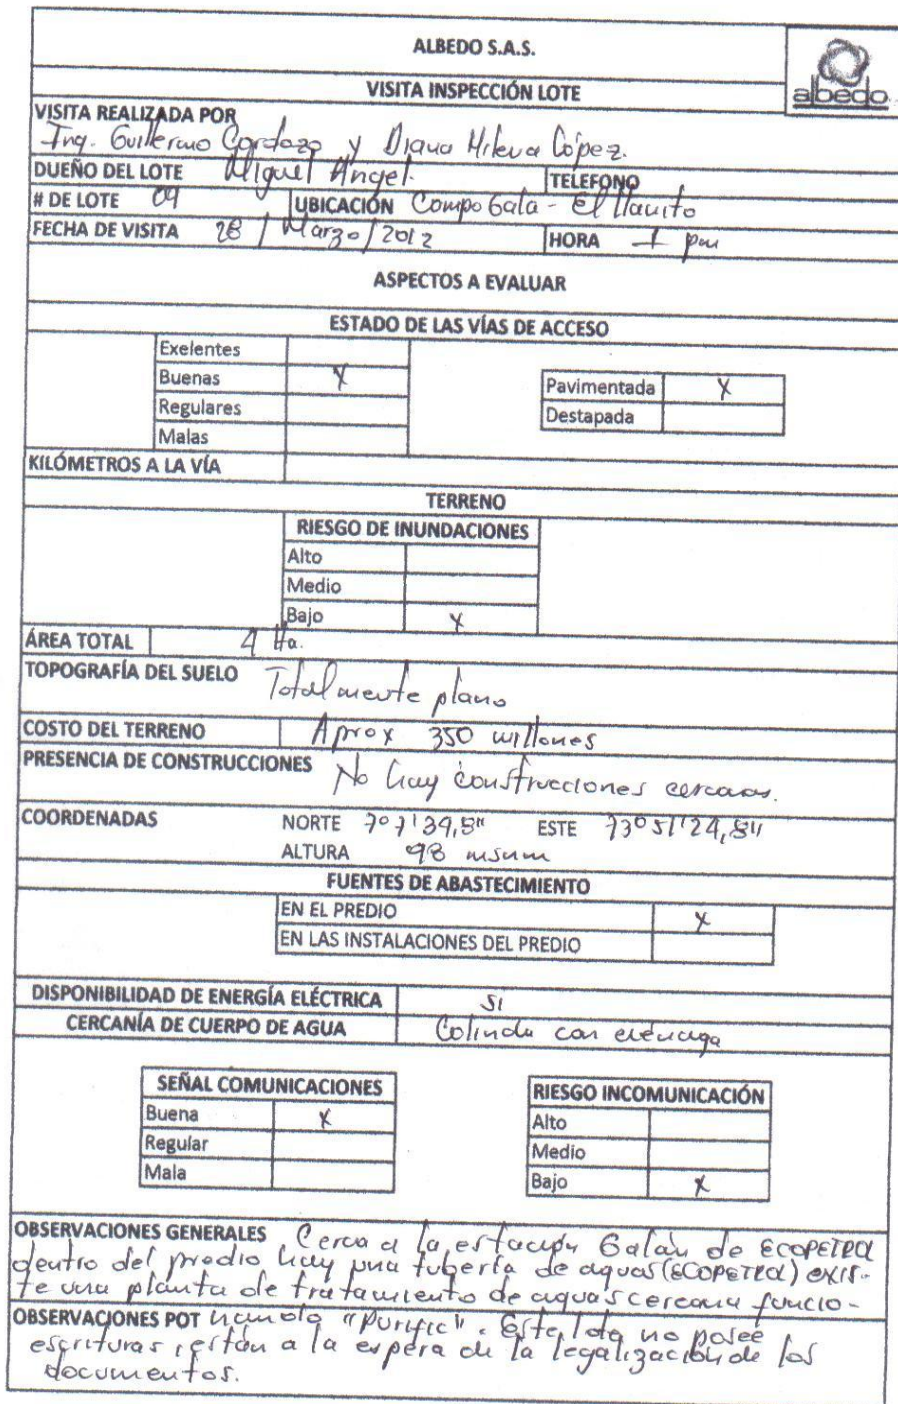 ALBEDO S.A.S.
albedo
VISITA INSPECCIÓN LOTE
VISITA REALIZADA POR
Ing. Guillermo Cardozo y Diana Milena López.
DUEÑO DEL LOTE Miguel Angel. TELEFONO
# DE LOTE 09 UBICACIÓN Campo Gala - El llanito
FECHA DE VISITA 28 / Marzo / 2012 HORA 1 pm
ASPECTOS A EVALUAR
ESTADO DE LAS VÍAS DE ACCESO
Exelentes
Buenas X Pavimentada X
Regulares Destapada
Malas
KILÓMETROS A LA VÍA
TERRENO
RIESGO DE INUNDACIONES
Alto
Medio
Bajo X
ÁREA TOTAL 4 Ha.
TOPOGRAFÍA DEL SUELO Totalmente plano
COSTO DEL TERRENO Aprox 350 millones
PRESENCIA DE CONSTRUCCIONES No hay construcciones cercanas.
COORDENADAS NORTE 7°7'39,5" ESTE 73°51'24,8"
ALTURA 98 msnm
FUENTES DE ABASTECIMIENTO
EN EL PREDIO X
EN LAS INSTALACIONES DEL PREDIO
DISPONIBILIDAD DE ENERGÍA ELÉCTRICA SI
CERCANÍA DE CUERPO DE AGUA Colinda con ciénaga
SEÑAL COMUNICACIONES RIESGO INCOMUNICACIÓN
Buena X Alto
Regular Medio
Mala Bajo X
OBSERVACIONES GENERALES Cerca a la estación Galán de ECOPETROL
dentro del predio hay una tubería de aguas (ECOPETROL) exis-
te una planta de tratamiento de aguas cercana funcio-
OBSERVACIONES POT nando "purific". Este lote no posee
escrituras, están a la espera de la legalización de los
documentos.